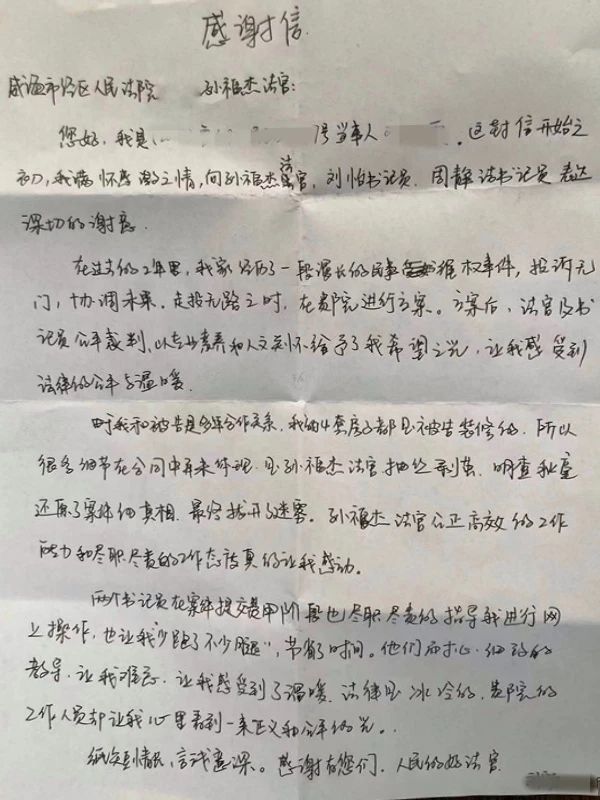 感谢信
威海市经区人民法院 孙福杰法官:
您好,我是 号当事人 。这封信开始之
初,我满怀感激之情,向孙福杰法官,刘怡书记员,周静涛书记员表达
深切的谢意。
在过去的2年里,我家经历了一段漫长的民事维权事件,投诉无
门,协调未果。走投无路之时,在贵院进行立案。立案后,法官及书
记员公平裁判,以专业素养和人文关怀给予了我希望之光,让我感受到
法律的公平与温暖。
由于我和被告是多年合作关系,我的4套房子都是被告装修的。所以
很多细节在合同中并未体现。是孙福杰法官抽丝剥茧,明查秋毫
还原了案件的真相。最终拨开了迷雾。孙福杰法官公正高效的工作
能力和尽职尽责的工作态度真的让我感动。
两个书记员在案件提交费用阶段也尽职尽责的指导我进行网
上操作,也让我“少跑了不少腿”,节省了时间。他们耐心、细致的
教导,让我难忘,让我感受到了温暖。法律是冰冷的,贵院的
工作人员却让我心里看到一束正义和公平的光。
纸短情长,言浅意深。感谢有您们,人民的好法官